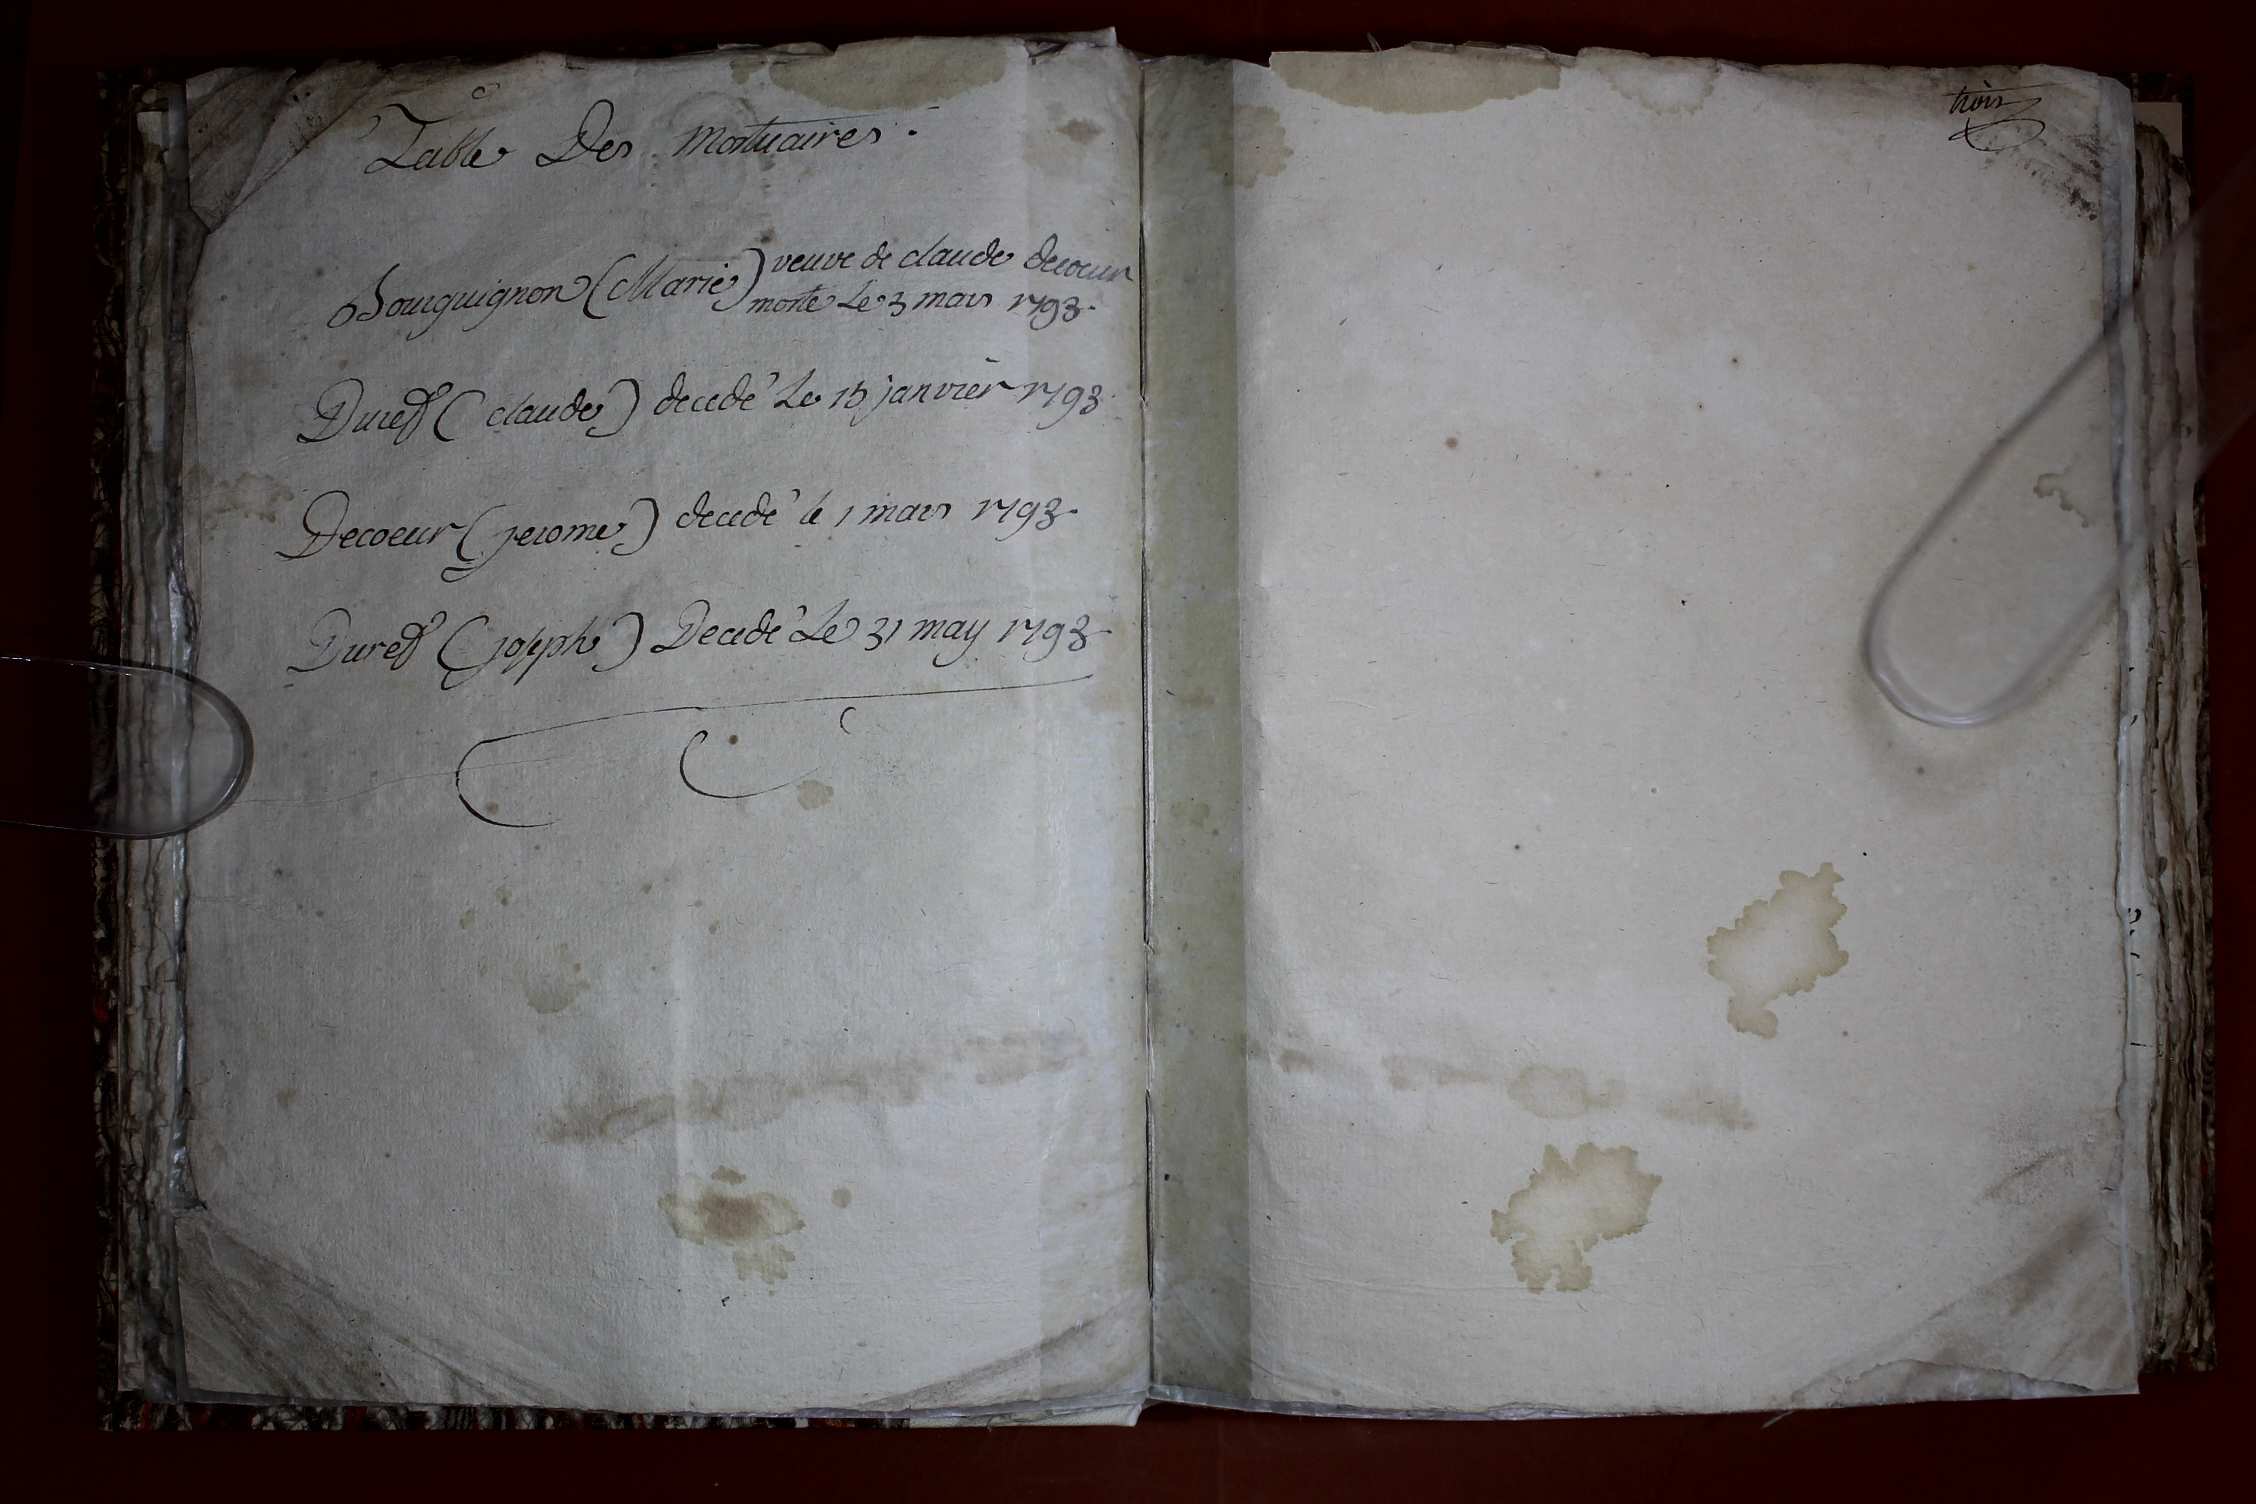 Table Des Mortuaires.
Bourguignon (Marie) veuve de claude decoeur
morte Le 3 mars 1793.
Duref (claude) decedé Le 15 janvier 1793
Decoeur (jerome) decedé le 1 mars 1793.
Duref (joseph) Decedé Le 31 may 1793
trois